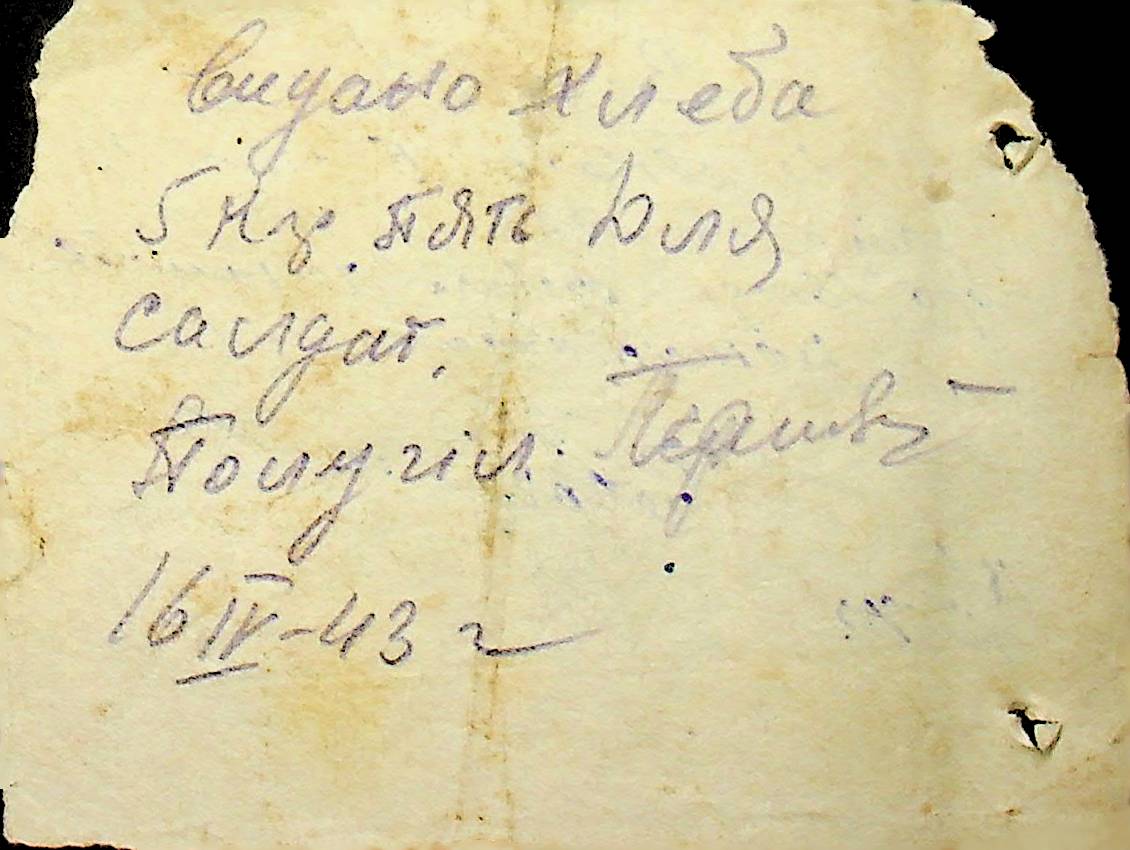 видано хлеба
5 кгр. пять для
салдат.
Получил.
16 IV - 43 г